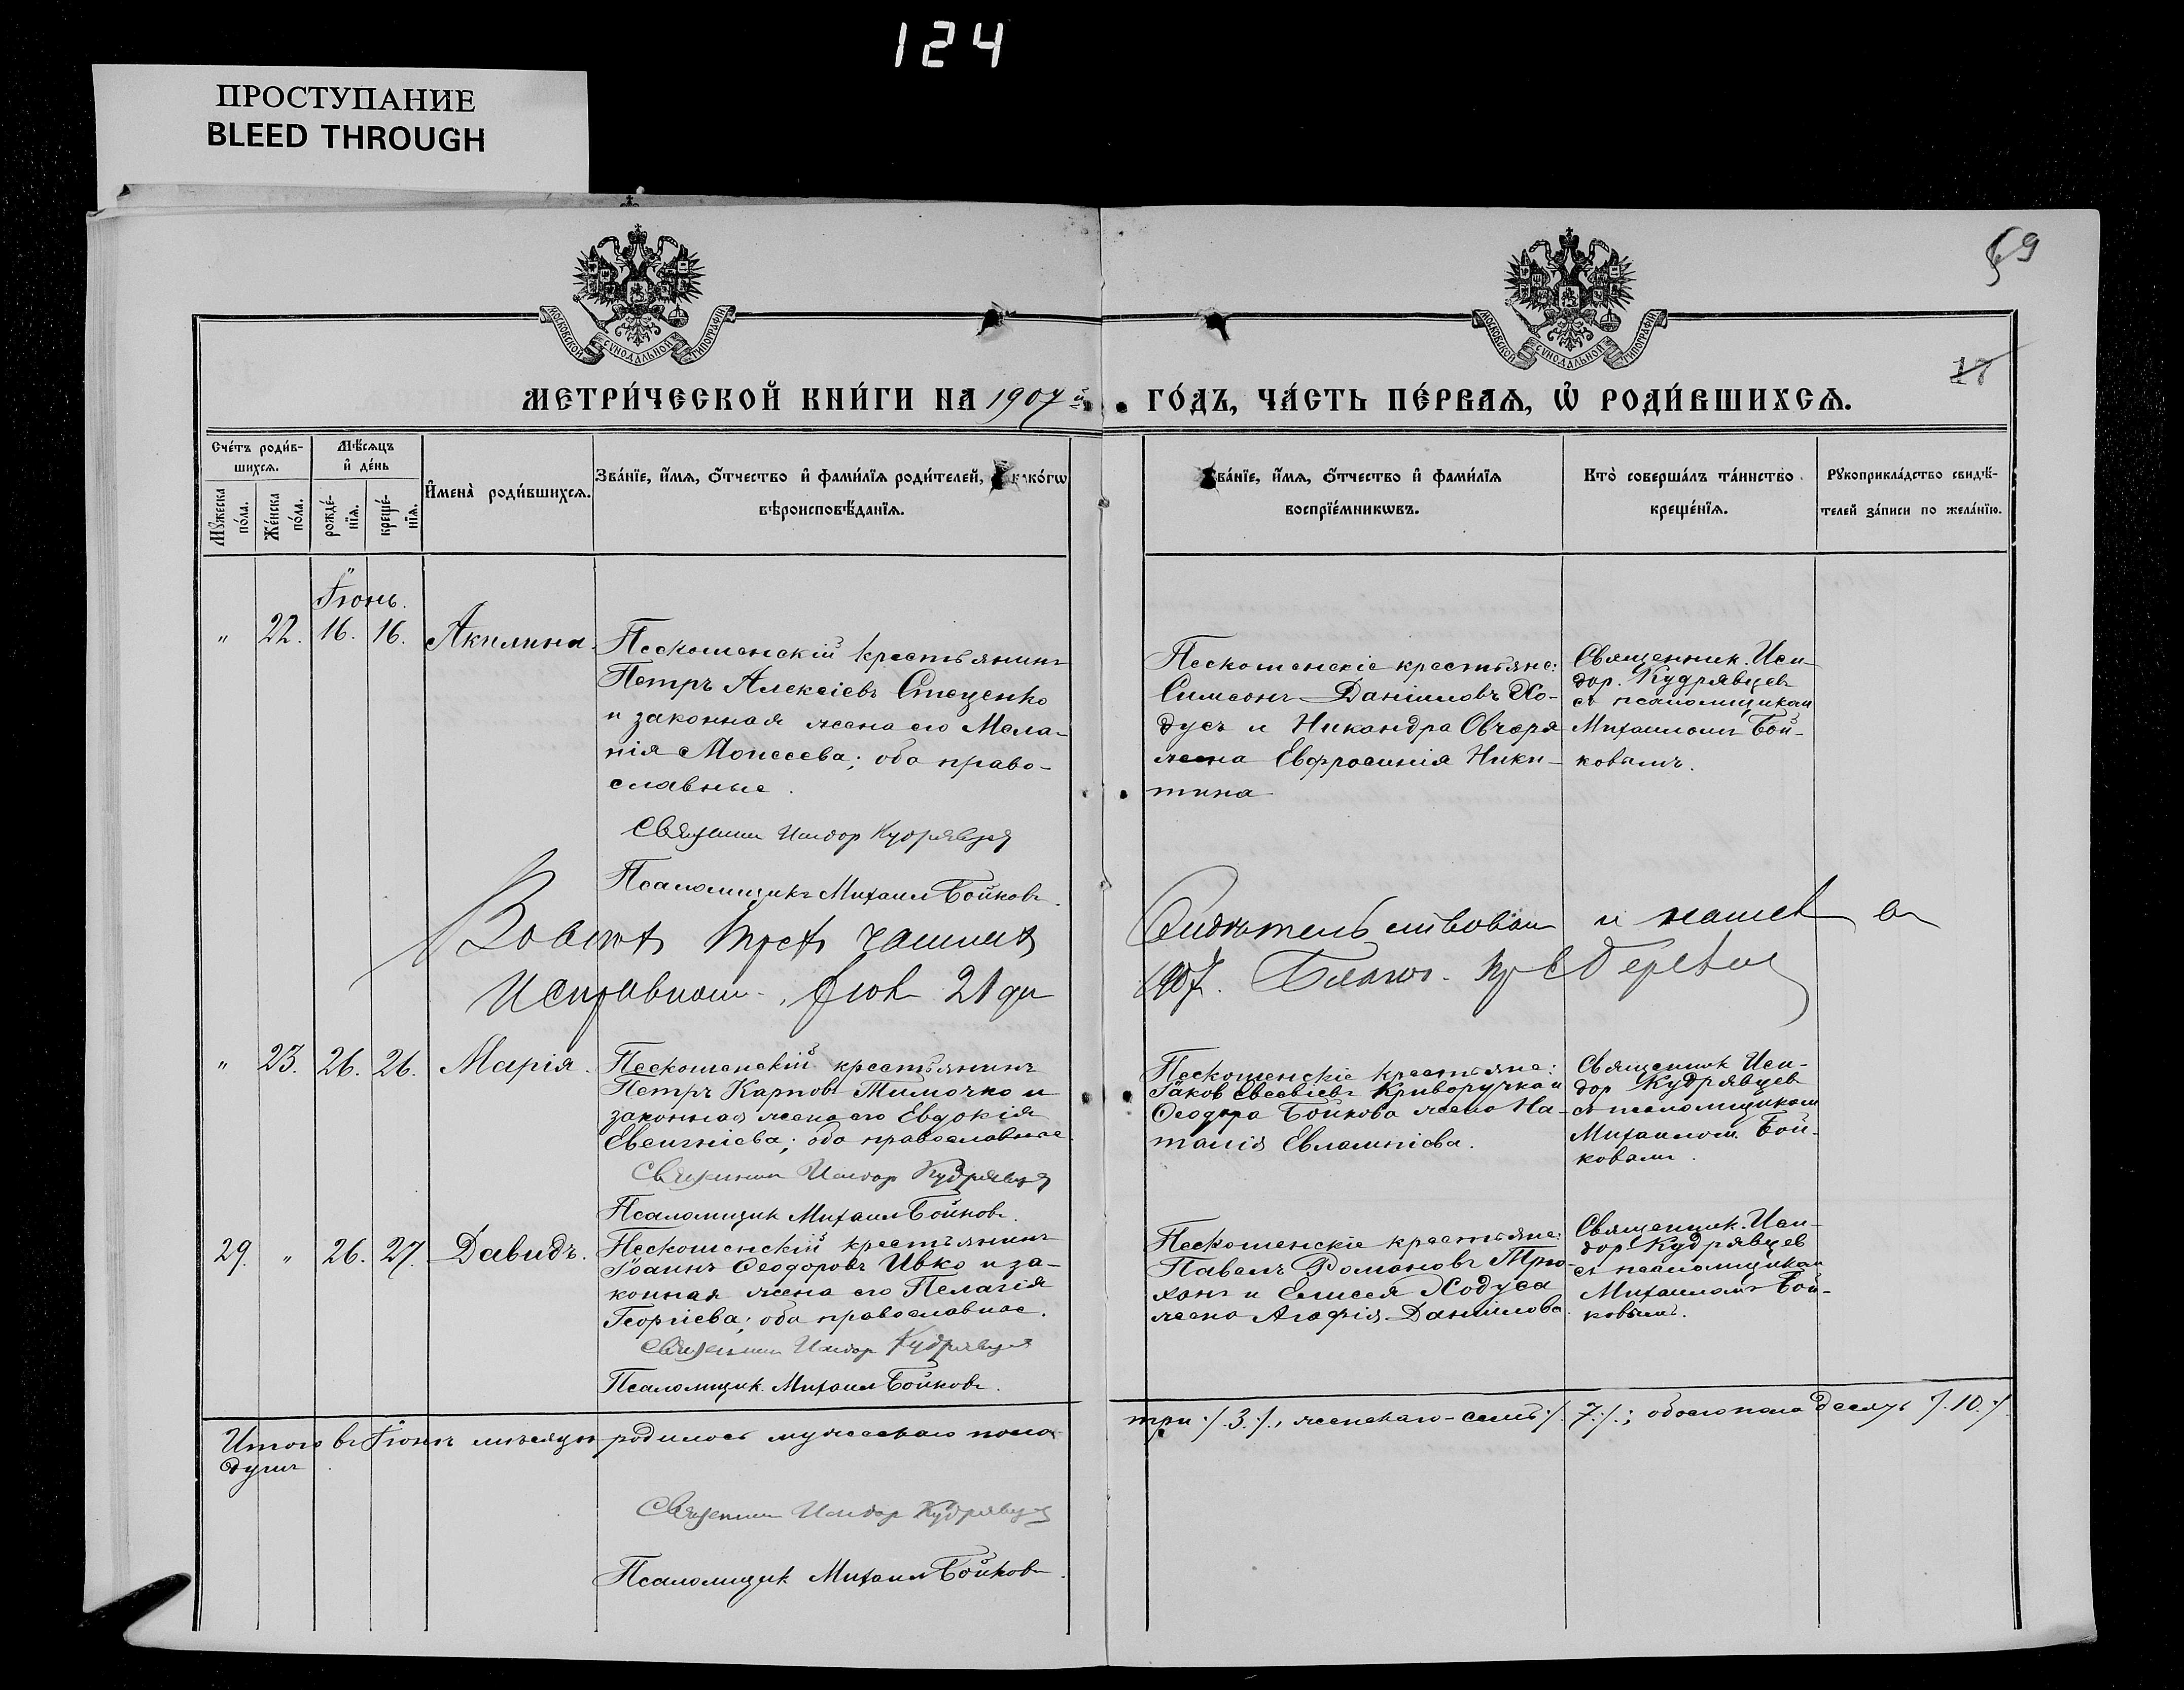 124
ПРОСТУПАНИЕ
BLEED THROUGH
59
17
МОСКОВСКОЙ СѴНОДАЛЬНОЙ ТИПОГРАФІИ
МОСКОВСКОЙ СѴНОДАЛЬНОЙ ТИПОГРАФІИ
МЕТРИ́ЧЕСКОЙ КНИ́ГИ НА 1907 й
ГО́ДЪ, ЧА́СТЬ ПЕ́РВАѦ, Ѡ҆ РОДИ́ВШИХСѦ.
Сче́тъ роди́в-
шихсѧ.
Мѣ́сѧцъ
и҆ де́нь
Мꙋ́жеска
по́ла.
Же́нска
по́ла.
рожде́-
нїѧ.
креще́-
нїѧ.
И҆мена̀ роди́вшихсѧ.
Зва́нїе, и҆́мѧ, ѻ҆́тчество и҆ фами́лїѧ роди́телей, како́гѡ
вѣроисповѣ́данїѧ.
Зва́нїе, и҆́мѧ, ѻ҆́тчество и҆ фами́лїѧ
воспрїе́мникѡвъ.
Кто̀ соверша́лъ та́инство
креще́нїѧ.
Рꙋкоприкла́дство свидѣ́-
телей за́писи по жела́нїю.
Іюнь.
" 22. 16. 16. Акилина.
Пескошенскій крестьянинъ
Петръ Алексіевъ Стеценко
и законная жена его Мела-
нія Моисеева; оба право-
славные.
Священник Исидор Кудрявцев
Псаломщикъ Михаил Бойковъ.
Пескошенскіе крестьяне:
Симеонъ Даніиловъ Хо-
дусъ и Никандра Овчаря
жена Евфросинія Ники-
тина
Священник Иси-
дор Кудрявцев
съ псаломщиком
Михаилом Бой-
ковымъ.
Исправном Іюн 21 дн
Свидѣтельствовал и нашел
1907. Благоч.
" 23. 26. 26. Марія.
Пескошенскій крестьянинъ
Петръ Карповъ Тимочко и
законная жена его Евдокія
Евсигніева; оба православные.
Священник Исидор Кудрявцев
Псаломщик Михаил Бойковъ.
Пескошенскіе крестьяне:
Іаков Евсевіевъ Криворучка и
Ѳеодора Бойкова жена На-
талія Евлампіева.
Священник Иси-
дор Кудрявцев
съ псаломщиком
Михаилом Бой-
ковым.
29. " 26. 27. Давидъ.
Пескошенскій крестьянинъ
Іоаннъ Ѳеодоровъ Ивко и за-
конная жена его Пелагія
Георгіева; оба православные.
Священник Исидор Кудрявцев
Псаломщик Михаил Бойковъ.
Пескошенскіе крестьяне:
Павелъ Романовъ Трю-
ханъ и Елисея Ходуса
жена Агафія Даніилова.
Священник Иси-
дор Кудрявцев
съ псаломщиком
Михаилом Бой-
ковымъ.
Итого въ Іюнѣ мѣсяцѣ родилось мужескаго пола
душъ
три ./. 3 ./., женскаго - семь ./. 7 ./.; обоего пола десять ./. 10 ./.
Священник Исидор Кудрявцев
Псаломщик Михаил Бойковъ.